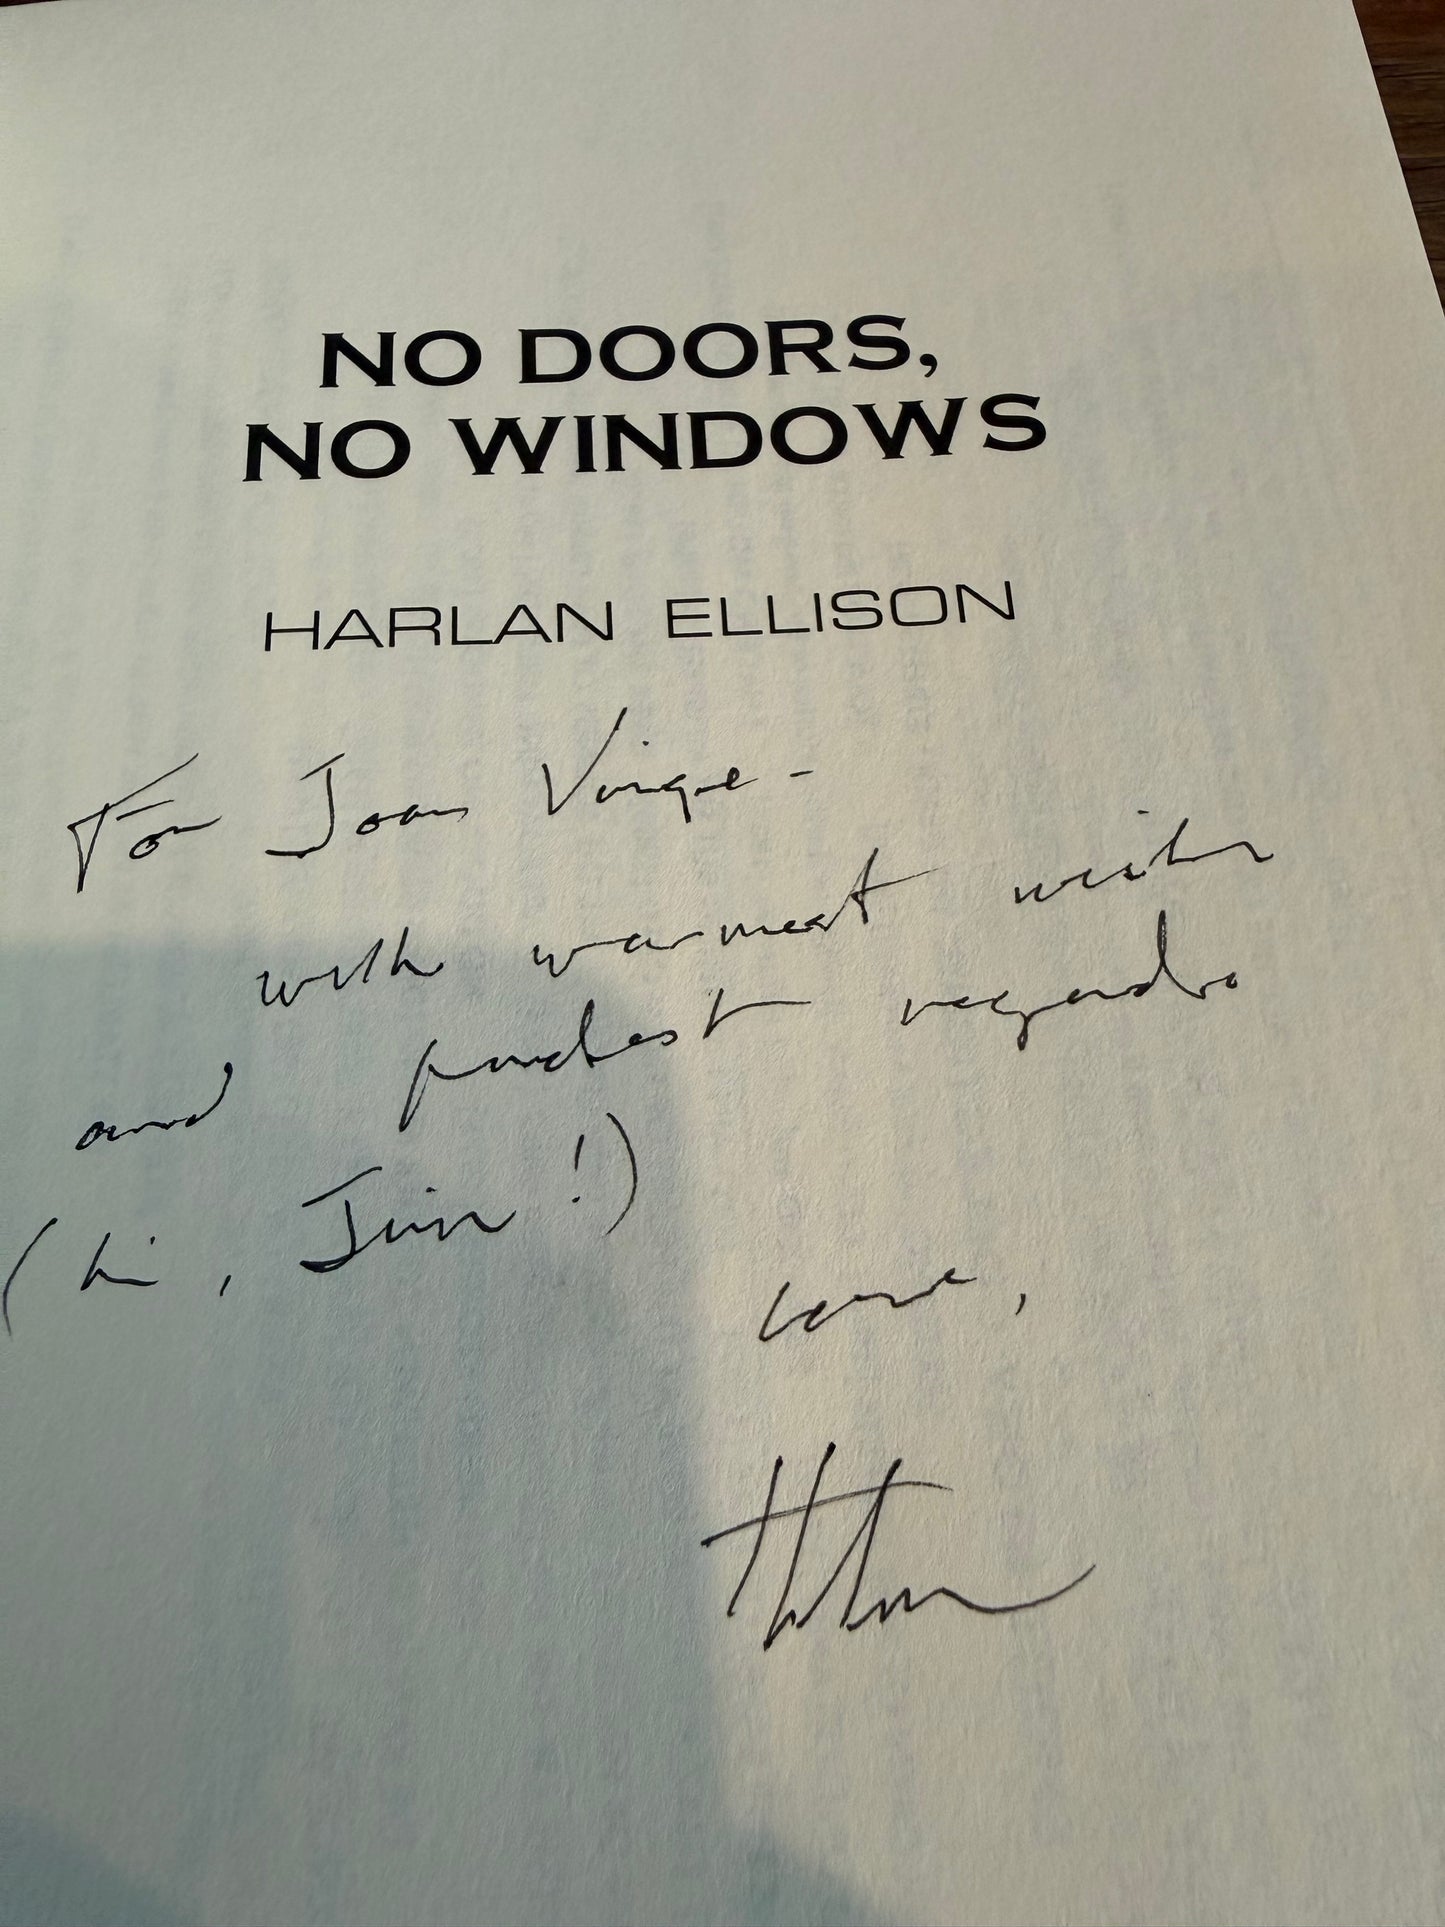 NO DOORS,
NO WINDOWS
HARLAN ELLISON
For Joan Vinge -
with warmest wishes
and fondest regards
(hi, Jim!)
Love,
Harlan